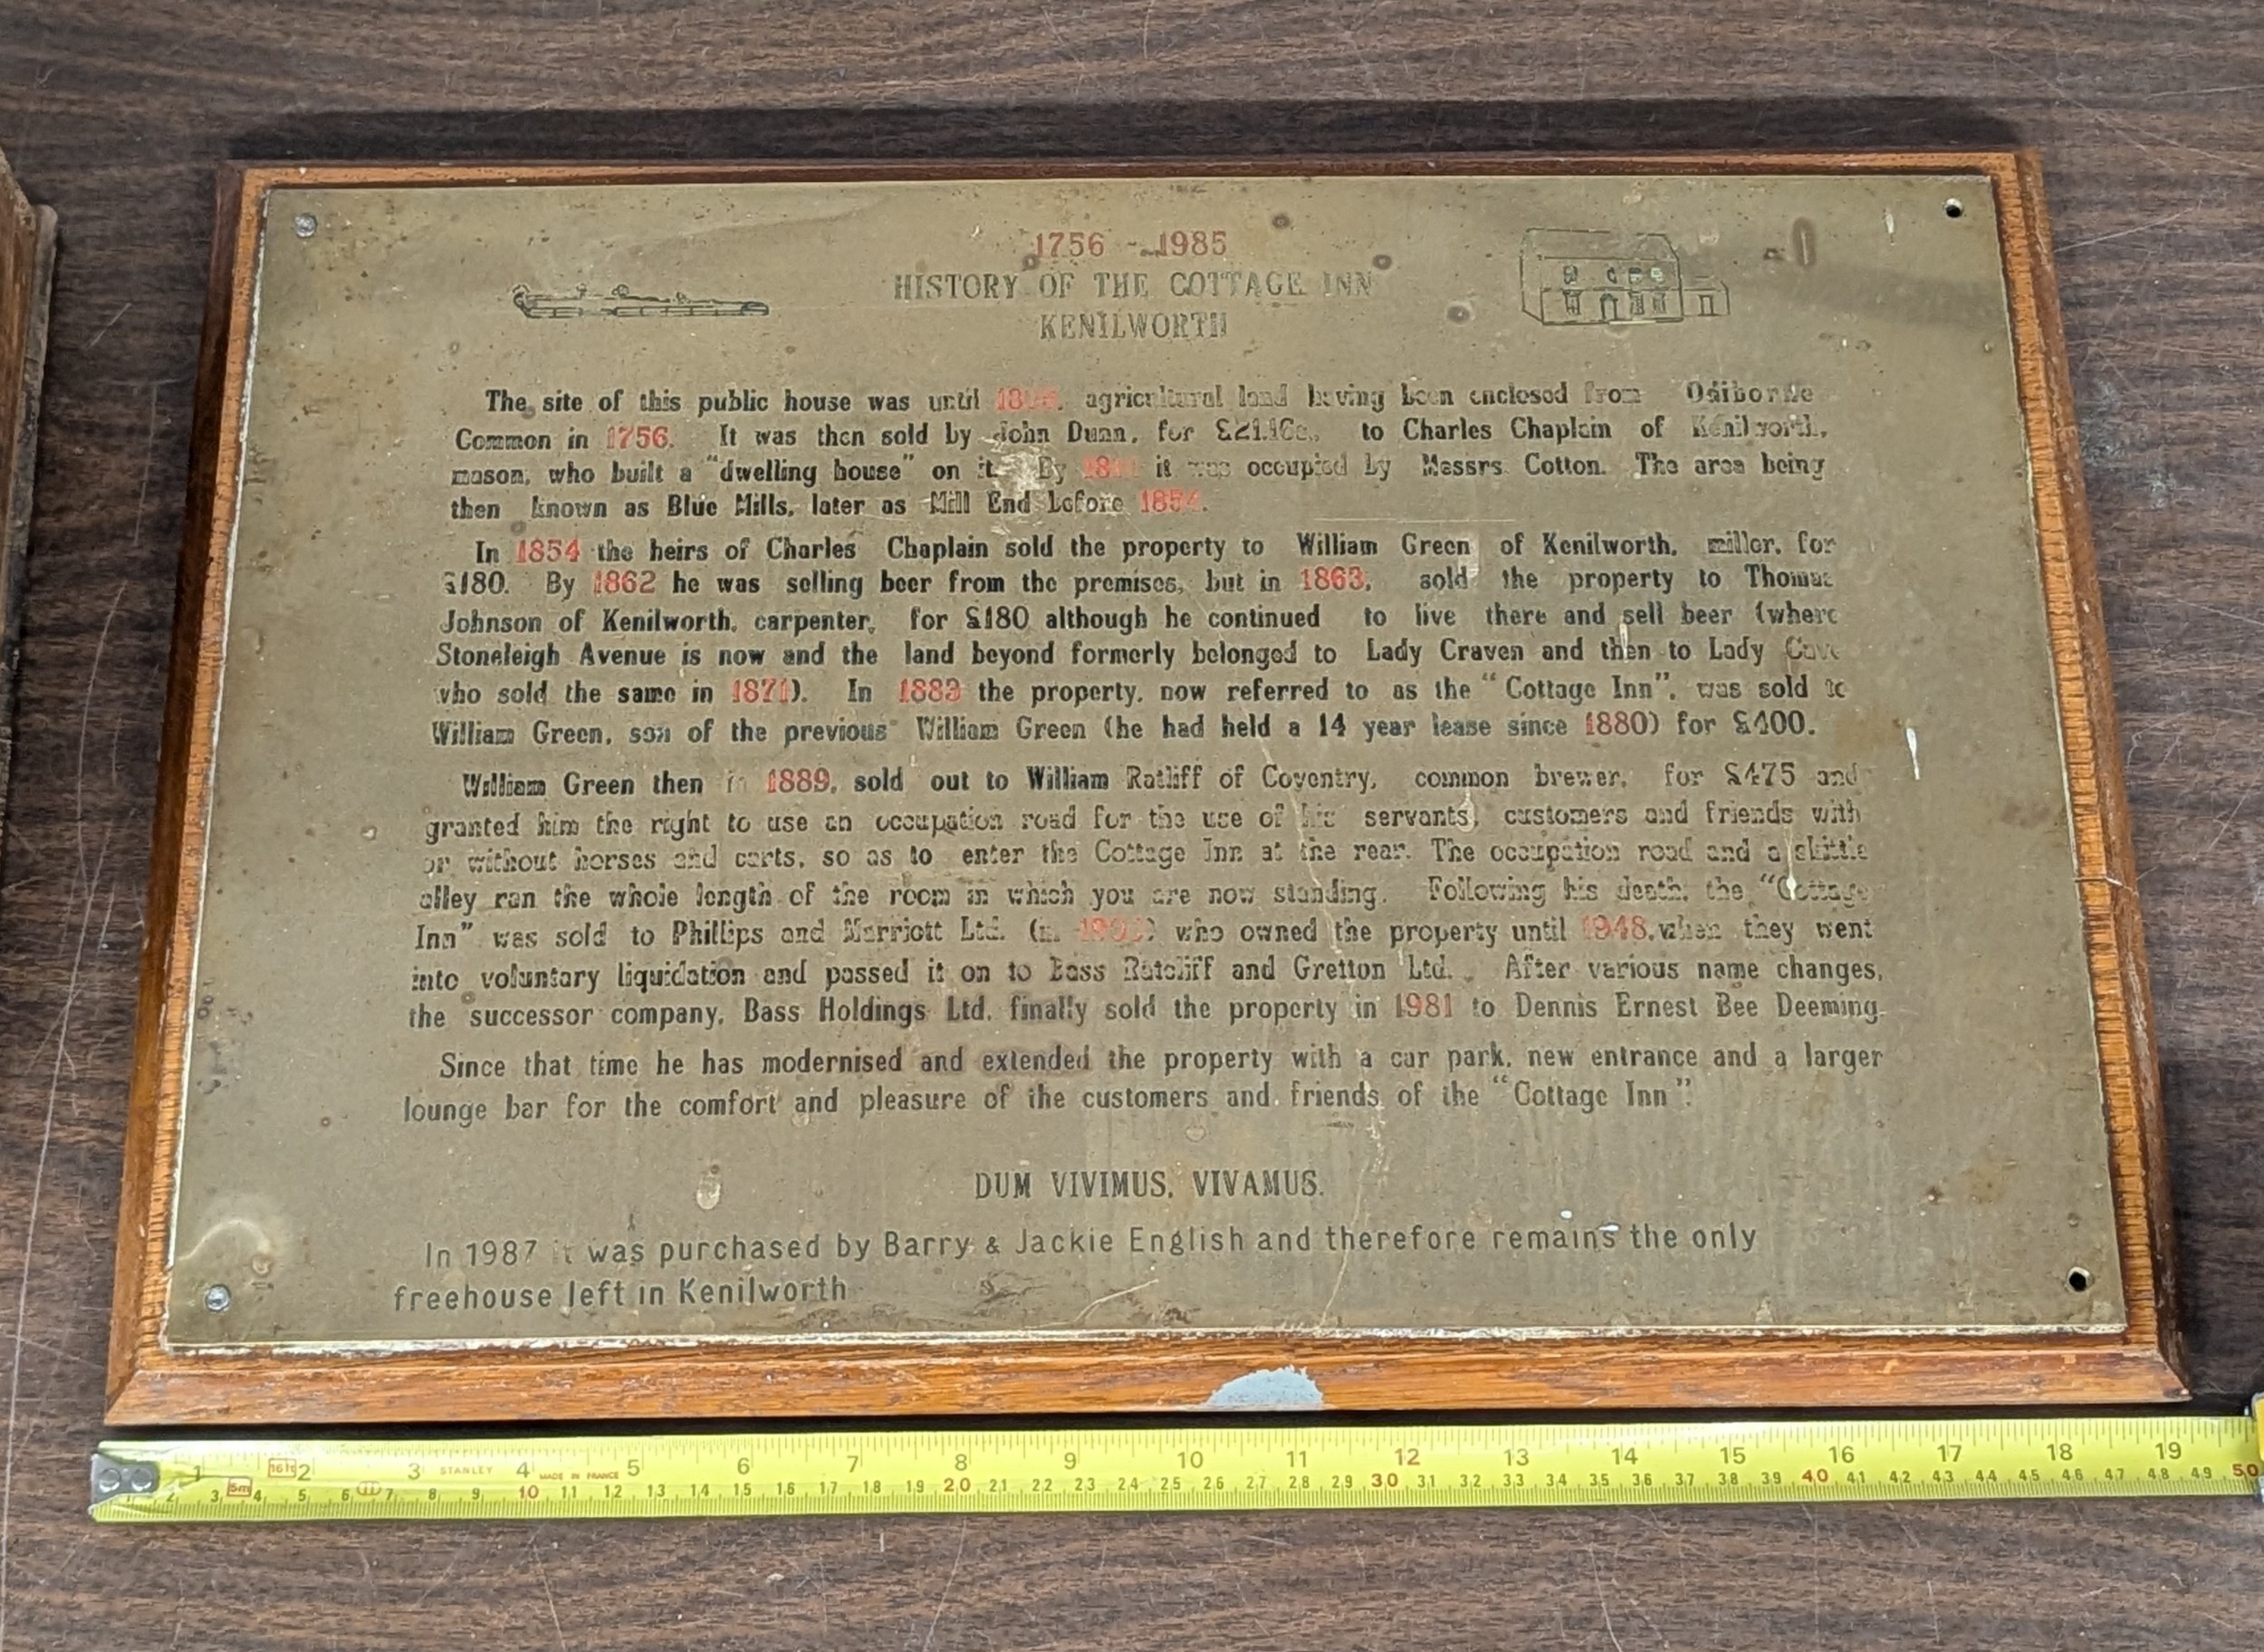 1756 - 1985
HISTORY OF THE COTTAGE INN
KENILWORTH
The site of this public house was until agricultural land having been enclosed from Odiborne
Common in 1756. It was then sold by John Dunn, for to Charles Chaplain of Kenilworth,
mason, who built a "dwelling house" on it. By it was occupied by Messrs Cotton. The area being
then known as Blue Mills, later as Mill End before 1854.
In 1854 the heirs of Charles Chaplain sold the property to William Green of Kenilworth, miller, for
£180. By 1862 he was selling beer from the premises, but in 1863, sold the property to Thomas
Johnson of Kenilworth, carpenter, for £180 although he continued to live there and sell beer (where
Stoneleigh Avenue is now and the land beyond formerly belonged to Lady Craven and then to Lady
who sold the same in 1871). In 1883 the property, now referred to as the "Cottage Inn", was sold to
William Green, son of the previous William Green (he had held a 14 year lease since 1880) for £400.
William Green then in 1889, sold out to William Ratliff of Coventry, common brewer, for £475 and
granted him the right to use an occupation road for the use of his servants, customers and friends with
or without horses and carts, so as to enter the Cottage Inn at the rear. The occupation road and a skittle
alley ran the whole length of the room in which you are now standing. Following his death, the "Cottage
Inn" was sold to Phillips and Marriott Ltd. (in who owned the property until 1948, when they went
into voluntary liquidation and passed it on to Bass Ratcliff and Gretton Ltd. After various name changes,
the successor company, Bass Holdings Ltd. finally sold the property in 1981 to Dennis Ernest Bee Deeming.
Since that time he has modernised and extended the property with a car park, new entrance and a larger
lounge bar for the comfort and pleasure of the customers and friends of the "Cottage Inn".
DUM VIVIMUS, VIVAMUS.
In 1987 it was purchased by Barry & Jackie English and therefore remains the only
freehouse left in Kenilworth
1 16ft 2 3 STANLEY 4 MADE IN FRANCE 5 6 7 8 9 10 11 12 13 14 15 16 17 18 19
1 2 3 5m 4 5 6 7 8 9 10 11 12 13 14 15 16 17 18 19 20 21 22 23 24 25 26 27 28 29 30 31 32 33 34 35 36 37 38 39 40 41 42 43 44 45 46 47 48 49 50